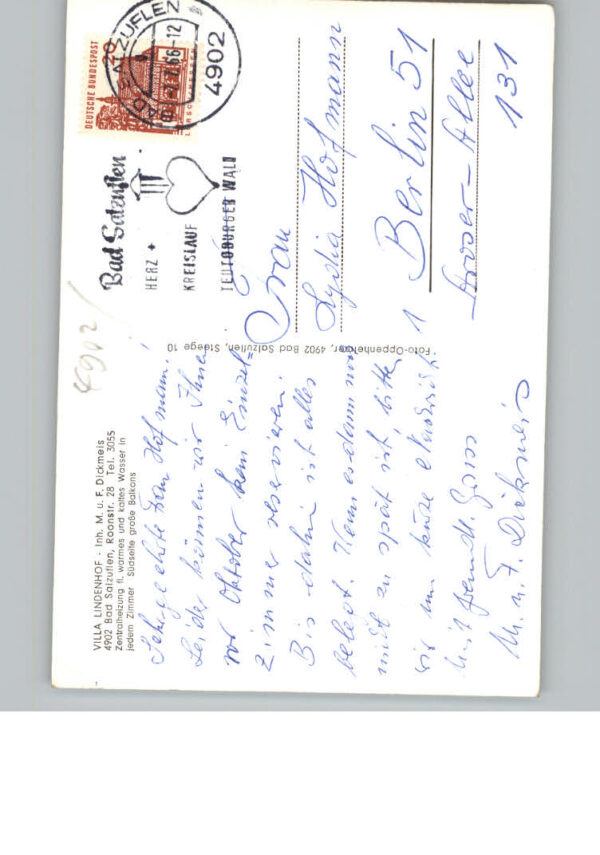 VILLA LINDENHOF - Inh. M. u. F. Dickmeis
4902 Bad Salzuflen, Roonstr. 28 Tel. 3055
Zentralheizung fl. warmes und kaltes Wasser in
jedem Zimmer Südseite große Balkons
Sehr geehrte Frau Hofmann!
Leider können wir Ihnen
vor Oktober kein Einzel=
zimmer reservieren.
Bis dahin ist alles
belegt. Wenn es dann noch
nicht zu spät ist, bitte
wir um kurze Nachricht.
Mit freundl. Gruss
M. u. F. Dickmeis
Foto-Oppenheimer, 4902 Bad Salzuflen, Steege 10
4902
DEUTSCHE BUNDESPOST
20
LORSCH HESSEN
BAD SALZUFLEN
66-12
4902
Bad Salzuflen
HERZ +
KREISLAUF
TEUTOBURGER WALD
Frau
Lydia Hofmann
1 Berlin 51
Aroser-Allee
131